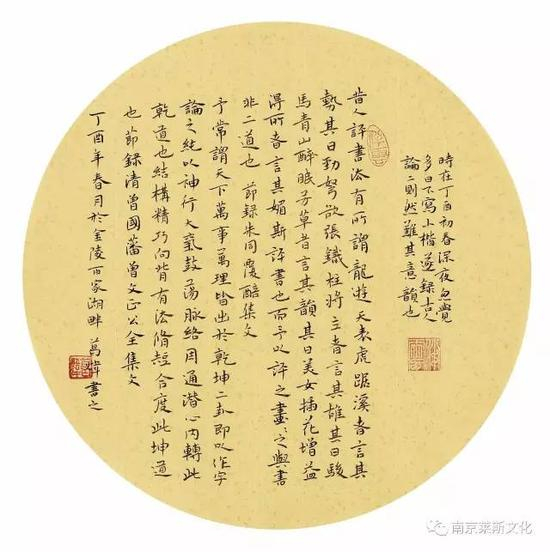 時在丁酉初春深夜忽覺
多日不寫小楷遂錄古人
論二則然難其意韻也
昔人評書法有所謂龍遊天表虎踞溪者言其
勢其曰勁弩欲張鐵柱將立者言其雄其曰駿
馬青山醉眠芳草者言其韻其曰美女插花增益
得所者言其媚斯評書也而予以評之畫〻之與書
非二道也 節錄朱同覆醅集文
予常謂天下萬事萬理皆出於乾坤二卦即以作字
論之純以神行大氣鼓蕩脈絡周通潛心內轉此
乾道也結構精巧向背有法脩短合度此坤道
也節錄清曾國藩曾文正公全集文
丁酉年春月於金陵百家湖畔 萬 書之
南京莱斯文化